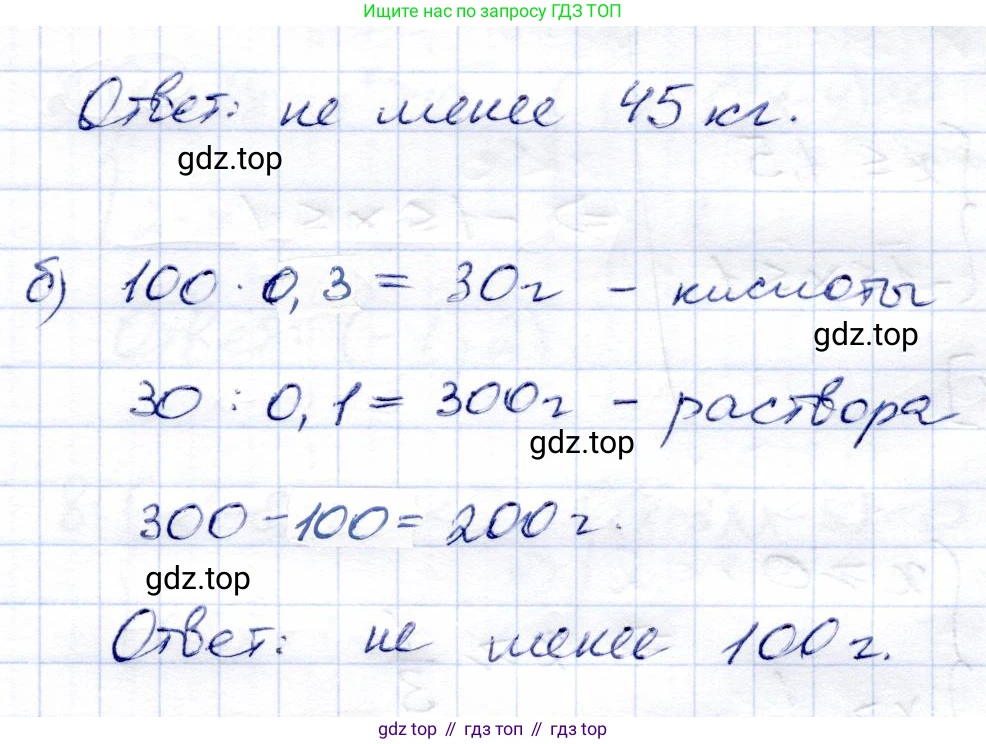 Ищите нас по запросу ГДЗ ТОП
Ответ: не менее 45 кг.
gdz.top
б) 100 · 0,3 = 30 г - кислоты
gdz.top
30 : 0,1 = 300 г - раствора
gdz.top
300 - 100 = 200 г.
gdz.top
Ответ: не менее 100 г.
gdz top // гдз топ // гдз.топ